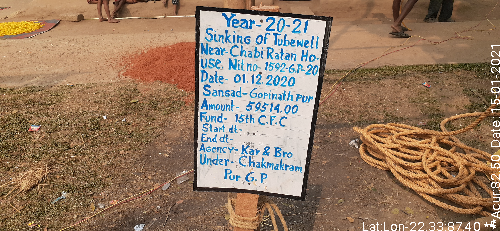 Year- 20-21
Sinking of Tubewell
Near- Chabi Ratan Ho-
use, Nit no- 1592-G.P-20
Date- 01.12.2020
Sansad- Gopinathpur
Amount- 59514.00
Fund- 15th C.F.C
Start dt-
End dt-
Agency- Kar & Bro
Under- Chakmakram
Pur G.P
Lat Lon- 22.33:87.40
Acu: 82.50, Date: 15-01-2021